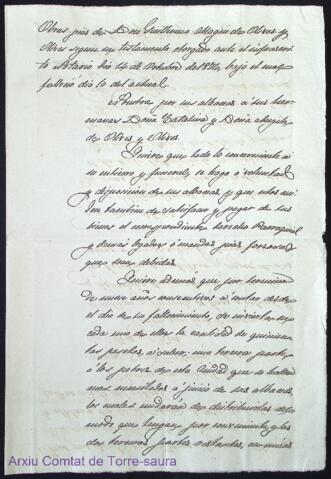 Obras pías de Don Guillermo Magín de Olives y
Olives segun su testamento otorgado ante el infrascri
to Notario dia 14 de Octubre de 1876, bajo el cual
falleció dia 10 del actual.
Nombra por sus albaceas a sus her
manas Doña Catalina y Doña
de Olives y Olives.
Quiere que todo lo concerniente á
su entierro y funeral, se haga á voluntad
y disposicion de sus albaceas, y que estas cui
den tambien de satisfacer y pagar de sus
bienes el correspondiente derecho Parroquial
y demas legados ó mandas pias forzosas
que sean debidas.
Quiere ademas que por termino
de nueve años consecutivos á contar desde
el dia de su fallecimiento, se inviertan en
cada uno de ellos la cantidad de quinien
tas pesetas á saber: una tercera parte
á los pobres de esta Ciudad que se hallen
mas necesitados á juicio de sus albaceas,
los cuales cuidarán de distribuirlas del
modo que tengan por conveniente y las
dos terceras partes restantes, en misas
Arxiu Comtat de Torre-saura